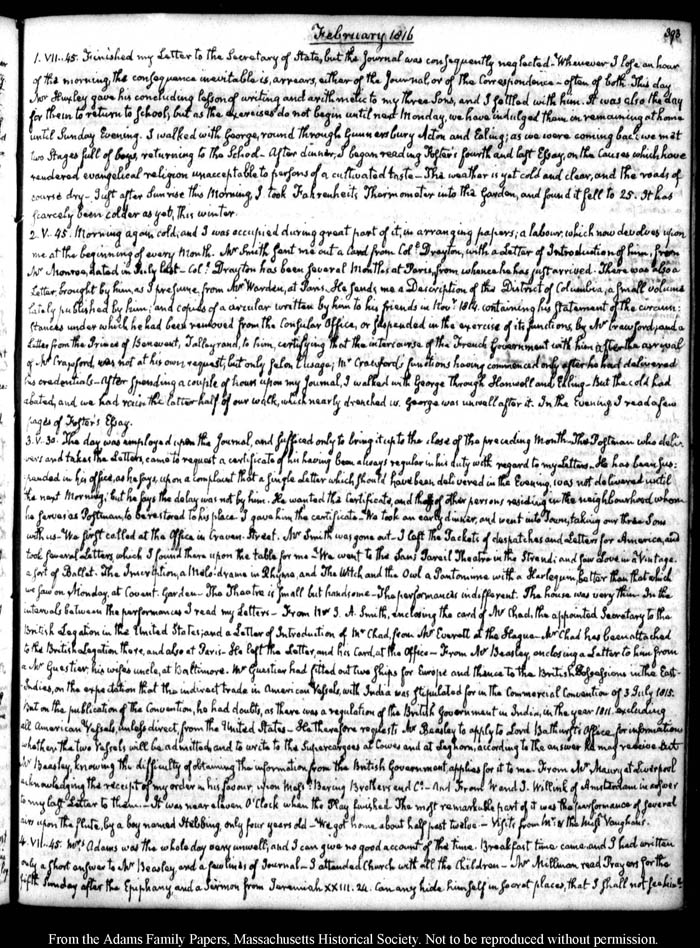 February 1816
393
1. VII..45. Finished my Letter to the Secretary of State, but the Journal was consequently neglected. Whenever I lose an hour
of the morning, the consequence inevitable is, arrears, either of the Journal, or of the Correspondence - often of both. This day
Mr Huxley gave his concluding lesson of writing and arithmetic to my three Sons, and I settled with him. It was also the day
for them to return to School; but as the exercises do not begin until next Monday, we have indulged them in remaining at home
until Sunday Evening. I walked with George, round through Gunnersbury Acton and Ealing; as we were coming back we met
two Stages full of boys, returning to the School - After dinner, I began reading Foster's fourth and last Essay, on the Causes which have
rendered evangelical religion unacceptable to persons of a cultivated taste - The weather is yet cold and clear, and the roads of
course dry - Just after Sunrise this Morning, I took Fahrenheit's Thermometer into the Garden, and found it fell to 25. It has
scarcely been colder as yet, this winter.
2. V..45. Morning again cold; and I was occupied during great part of it, in arranging papers; a labour, which now devolves upon
me at the beginning of every Month. Mr Smith sent me out a Card from Coll. Drayton, with a Letter of Introduction of him, from
Mr Monroe, dated in July last - Coll. Drayton has been several Months at Paris, from whence he has just arrived. There was also a
Letter, brought by him, as I presume, from Mr Warden, at Paris. He sends me a Description of the District of Columbia, a small volume
lately published by him; and copies of a circular written by him to his friends in Novr 1814. containing his Statement of the circum-
stances under which he had been removed from the Consular Office, or suspended in the exercise of its functions, by Mr Crawford; and a
Letter from the Prince of Benevent, Talleyrand, to him, certifying that the intercourse of the French Government with him after the arrival
of Mr Crawford, was not at his own request, but only selon l'usage; Mr Crawford's functions having commenced only after he had delivered
his credentials - After spending a couple of hours upon my Journal, I walked with George through Hanwell and Ealing - But the cold had
abated, and we had rain the latter half of our walk, which nearly drenched us. George was unwell after it. In the Evening I read a few
pages of Foster's Essay.
3. V. 30. The day was employed upon the Journal, and sufficed only to bring it up to the close of the preceding Month - The Postman who deli-
vers and takes the Letters, came to request a certificate of his having been always regular in his duty with regard to my Letters. He has been sus-
pended in his office, as he says, upon a complaint that a single Letter which should have been delivered in the Evening, was not delivered until
the next Morning; but he says the delay was not by him. He wanted the Certificate, and those of other persons residing in the neighbourhood whom
he serves as Postman, to be restored to his place. I gave him the certificate - We took an early dinner, and went into Town; taking our three Sons
with us - We first called at the Office in Craven-Street. Mr Smith was gone out - I left the Packets of despatches and Letters for America, and
took several Letters, which I found there upon the table for me - We went to the Sans Pareil Theatre in the Strand; and saw Love in a Vintage.
a sort of Ballet - The Inscription, a Melo-drame in Rhyme, and The Witch and the Owl a Pantomime with a Harlequin, better than that which
we saw on Monday, at Covent-Garden - The Theatre is small but handsome - The performances indifferent. The house was very thin - In the
intervals between the performances I read my Letters - From Mr J. A. Smith, enclosing the card of Mr Chad, the appointed Secretary to the
British Legation in the United States; and a Letter of Introduction of Mr Chad, from Mr Everett at the Hague - Mr Chad has been attached
to the British Legation there, and also at Paris - He left the Letter, and his Card, at the Office - From Mr Beasley, enclosing a Letter to him from
a Mr Guestier, his wife's uncle, at Baltimore. Mr Guestier had fitted out two Ships for Europe and thence to the British Possessions in the East-
Indies, on the expectation that the indirect trade in American Vessels, with India was stipulated for in the Commercial Convention of 3 July 1815.
But on the publication of the Convention, he had doubts, as there was a regulation of the British Government in India, in the year 1811. excluding
all American Vessels, unless direct, from the United States - He therefore requests Mr Beasley to apply to Lord Bathurst's Office, for information
whether the two Vessels will be admitted, and to write to the Supercargoes at Cowes and at Leghorn, according to the answer he may receive. But
Mr Beasley, knowing the difficulty of obtaining the information from the British Government applies for it to me - From Mr Maury at Liverpool
acknowledging the receipt of my order in his favour, upon Messrs Baring Brothers and Co. - And from W and J. Willink of Amsterdam in answer
to my last Letter to them - It was near eleven O'Clock when the Play finished. The most remarkable part of it was the performance of several
airs upon the flute, by a boy named Hebbing, only four years old - We got home about half past twelve - Visits from Mr & the Miss Vaughans.
4. VII..45. Mrs Adams was the whole day very unwell; and I can give no good account of the time. Breakfast time came and I had written
only a short answer to Mr Beasley and a few lines of Journal - I attended Church with all the Children - Mr Millman read Prayers for the
fifth Sunday after the Epiphany and a Sermon from Jeremiah XXIII. 24. Can any hide himself in secret places, that I shall not see him?
From the Adams Family Papers, Massachusetts Historical Society. Not to be reproduced without permission.